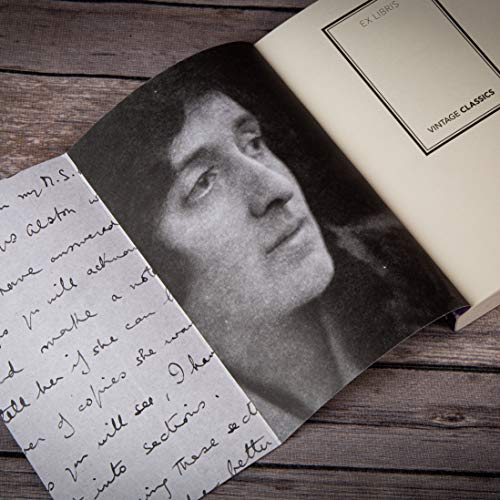 EX LIBRIS
VINTAGE CLASSICS
n my M.S.
Alston w
have answered
s you will ackno
d make a not
tell her if she can
er of copies she wan
s you will see, I have
t into sections.
ing these sect
her better